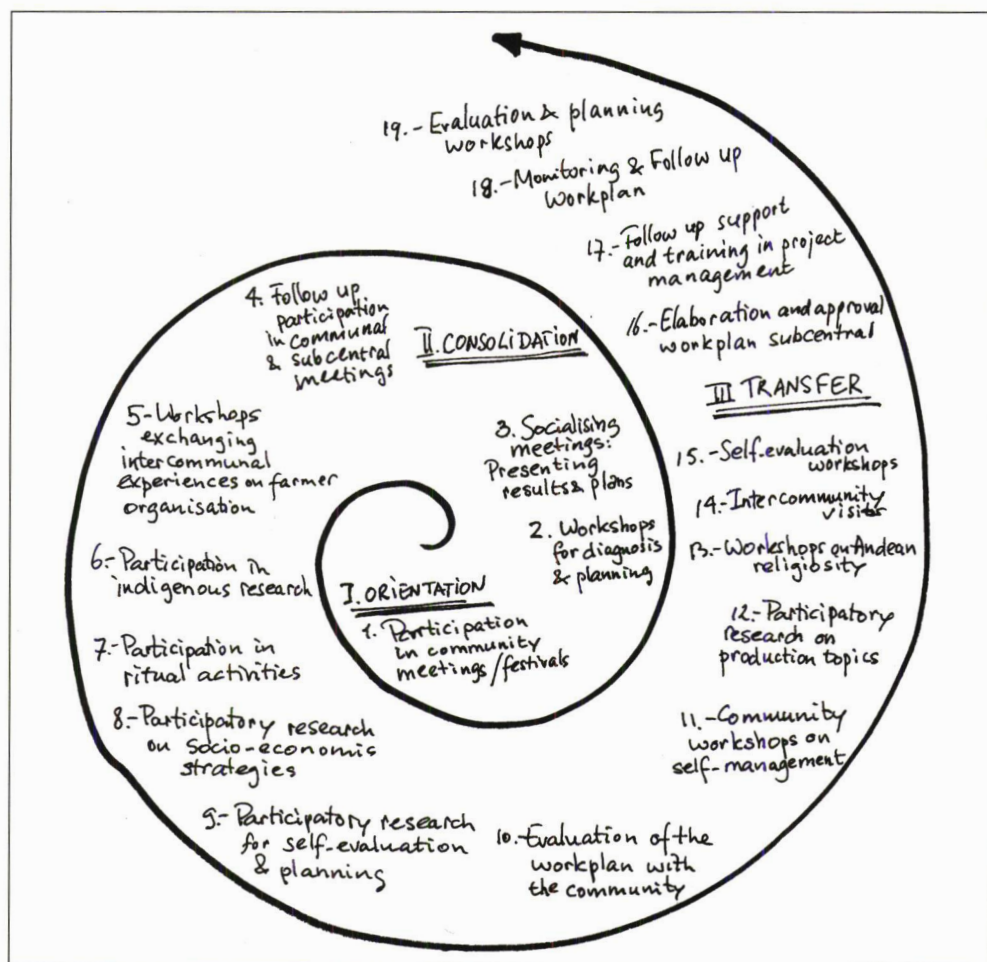 I. ORIENTATION
1. Participation
in community
meetings/festivals
2. Workshops
for diagnosis
& planning
3. Socialising
meetings:
Presenting
results & plans
II. CONSOLIDATION
4. Follow up
participation
in communal
& subcentral
meetings
5-Workshops
exchanging
intercommunal
experiences on farmer
organisation
6.-Participation in
indigenous research
7.-Participation in
ritual activities
8.-Participatory research
on socio-economis
strategies
9.-Participatory research
for self-evaluation
& planning
10.-Evaluation of the
workplan with
the community
11.-Community
workshops on
self-management
12.-Participatory
research on
production topics
13.-Workshops on Andean
religiosity
14.-Intercommunity
visits
15.-Self-evaluation
workshops
III TRANSFER
16.-Elaboration and approval
workplan subcentral
17.-Follow up support
and training in project
management
18.-Monitoring & Follow up
workplan
19.-Evaluation & planning
workshops